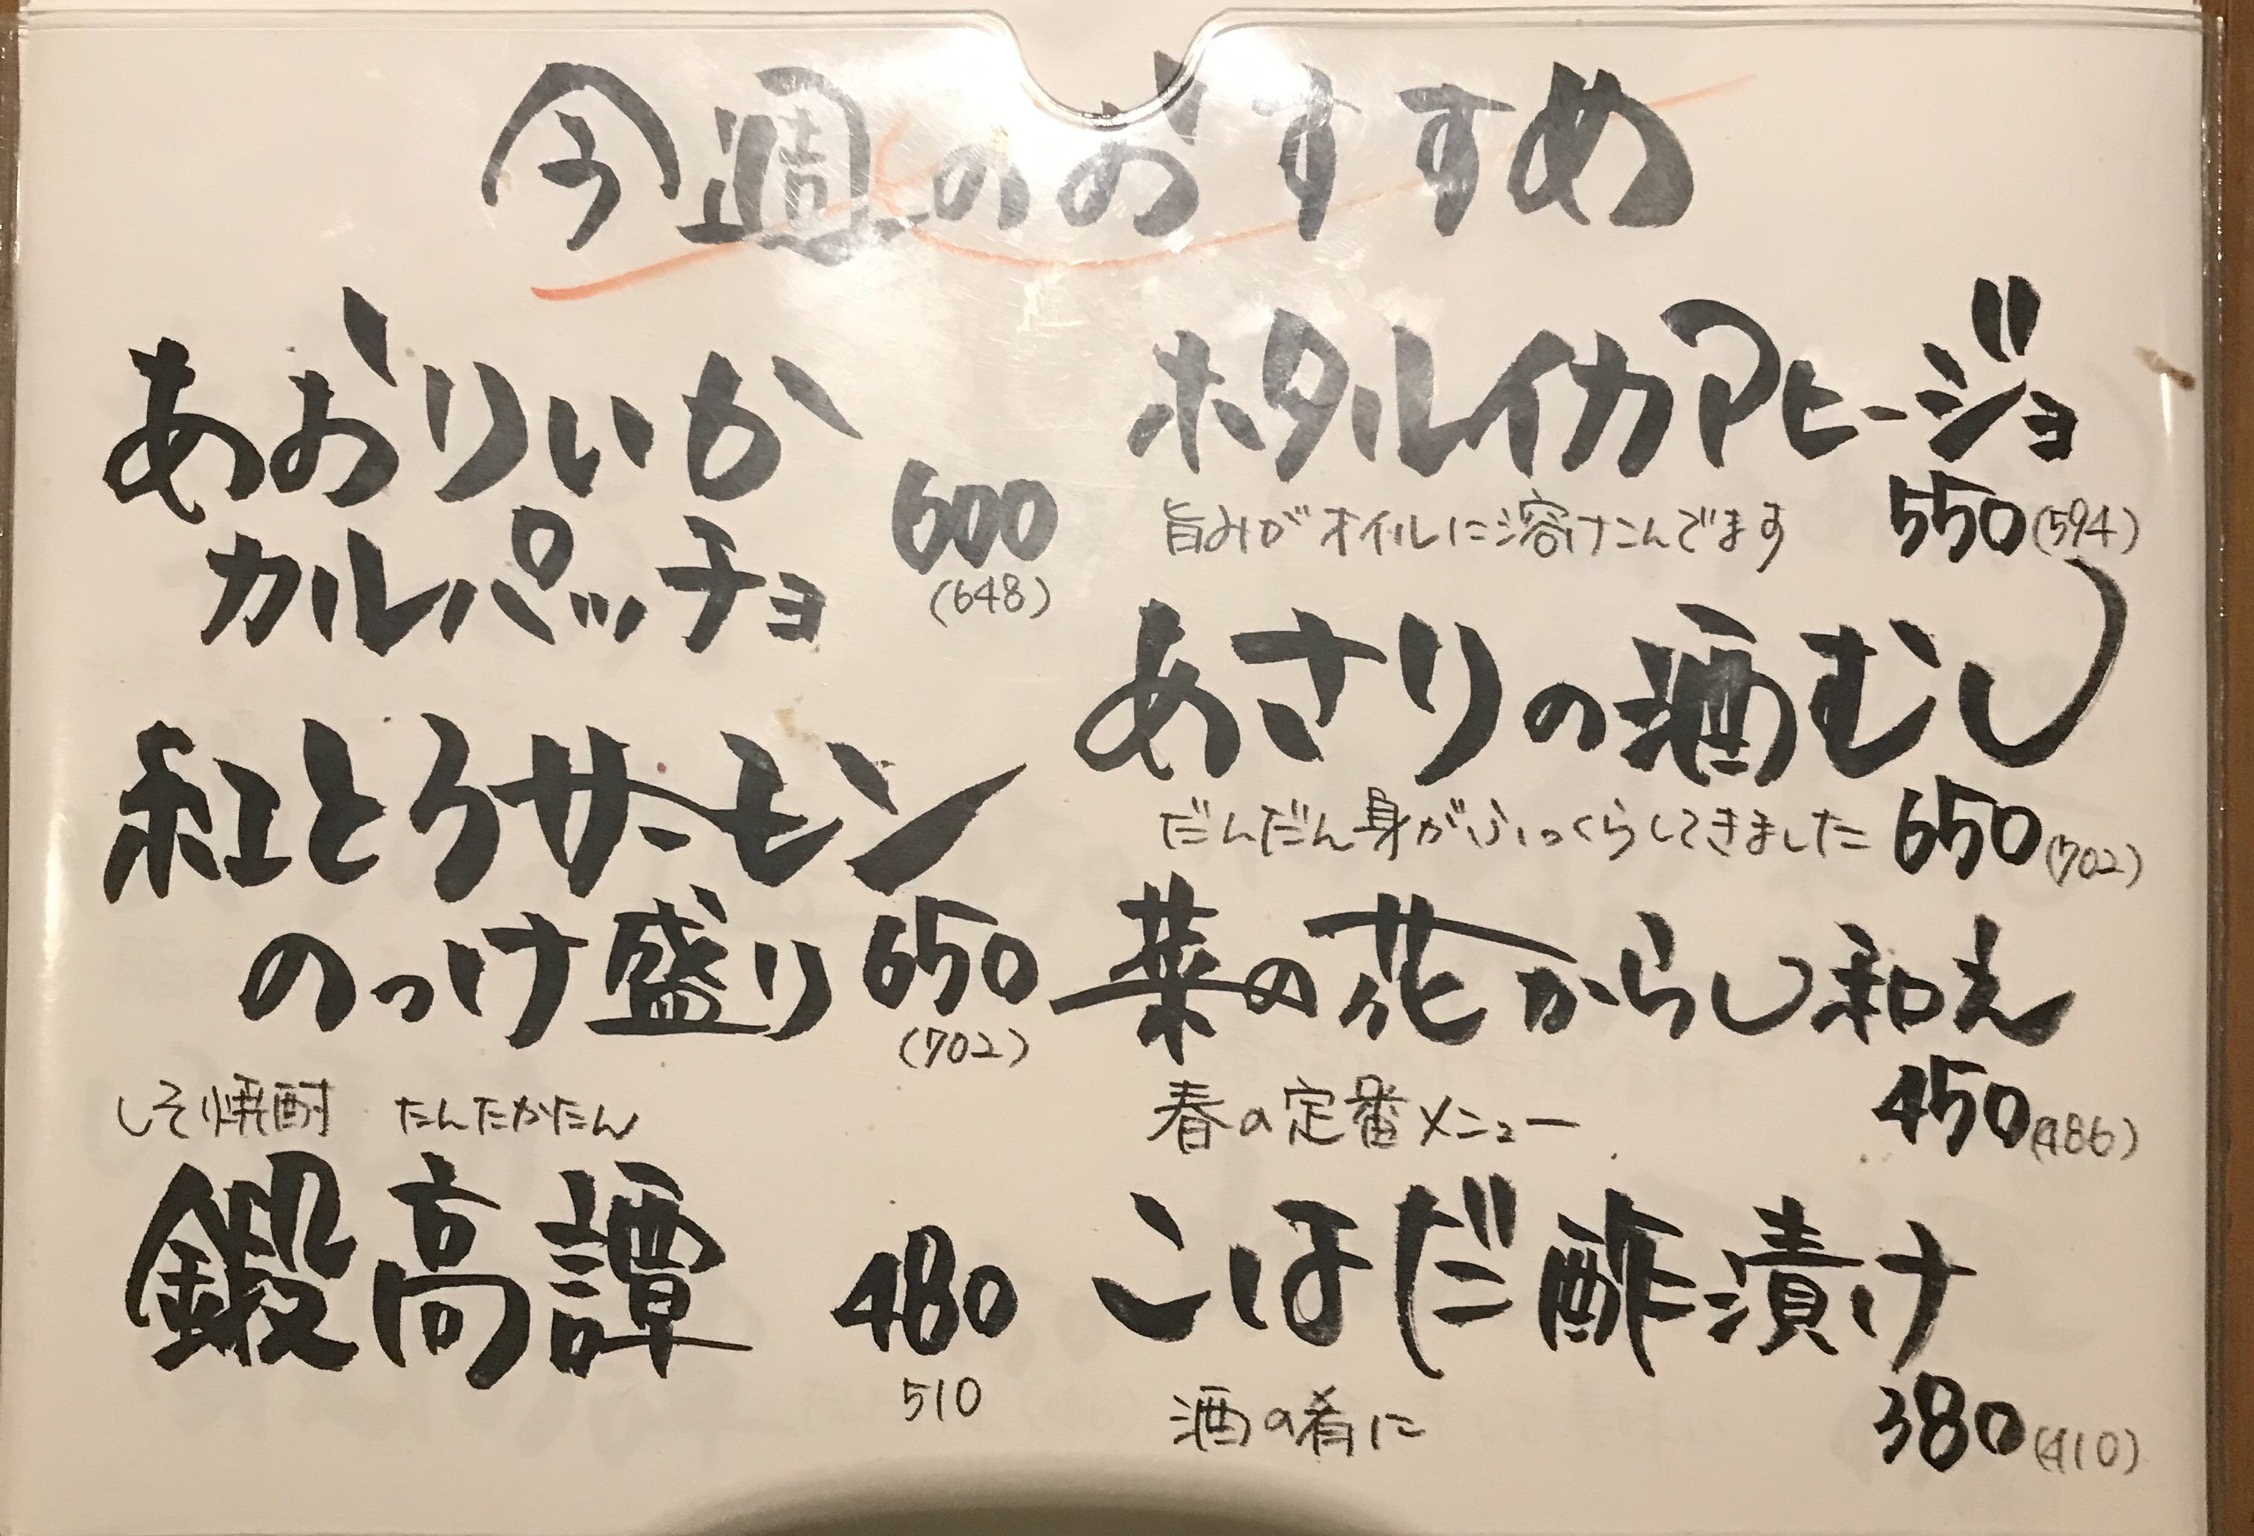 今週のおすすめ
あおりいか
カルパッチョ
600
(648)
紅とろサーモン
のっけ盛り 650
(702)
しそ焼酎 たんたかたん
鍛高譚
480
510
ホタルイカアヒージョ
旨みがオイルに溶けこんでます 550(594)
あさりの酒むし
だんだん身がふっくらしてきました 650(702)
菜の花からし和え
春の定番メニュー 450(486)
こはだ酢漬け
酒の肴に 380(410)